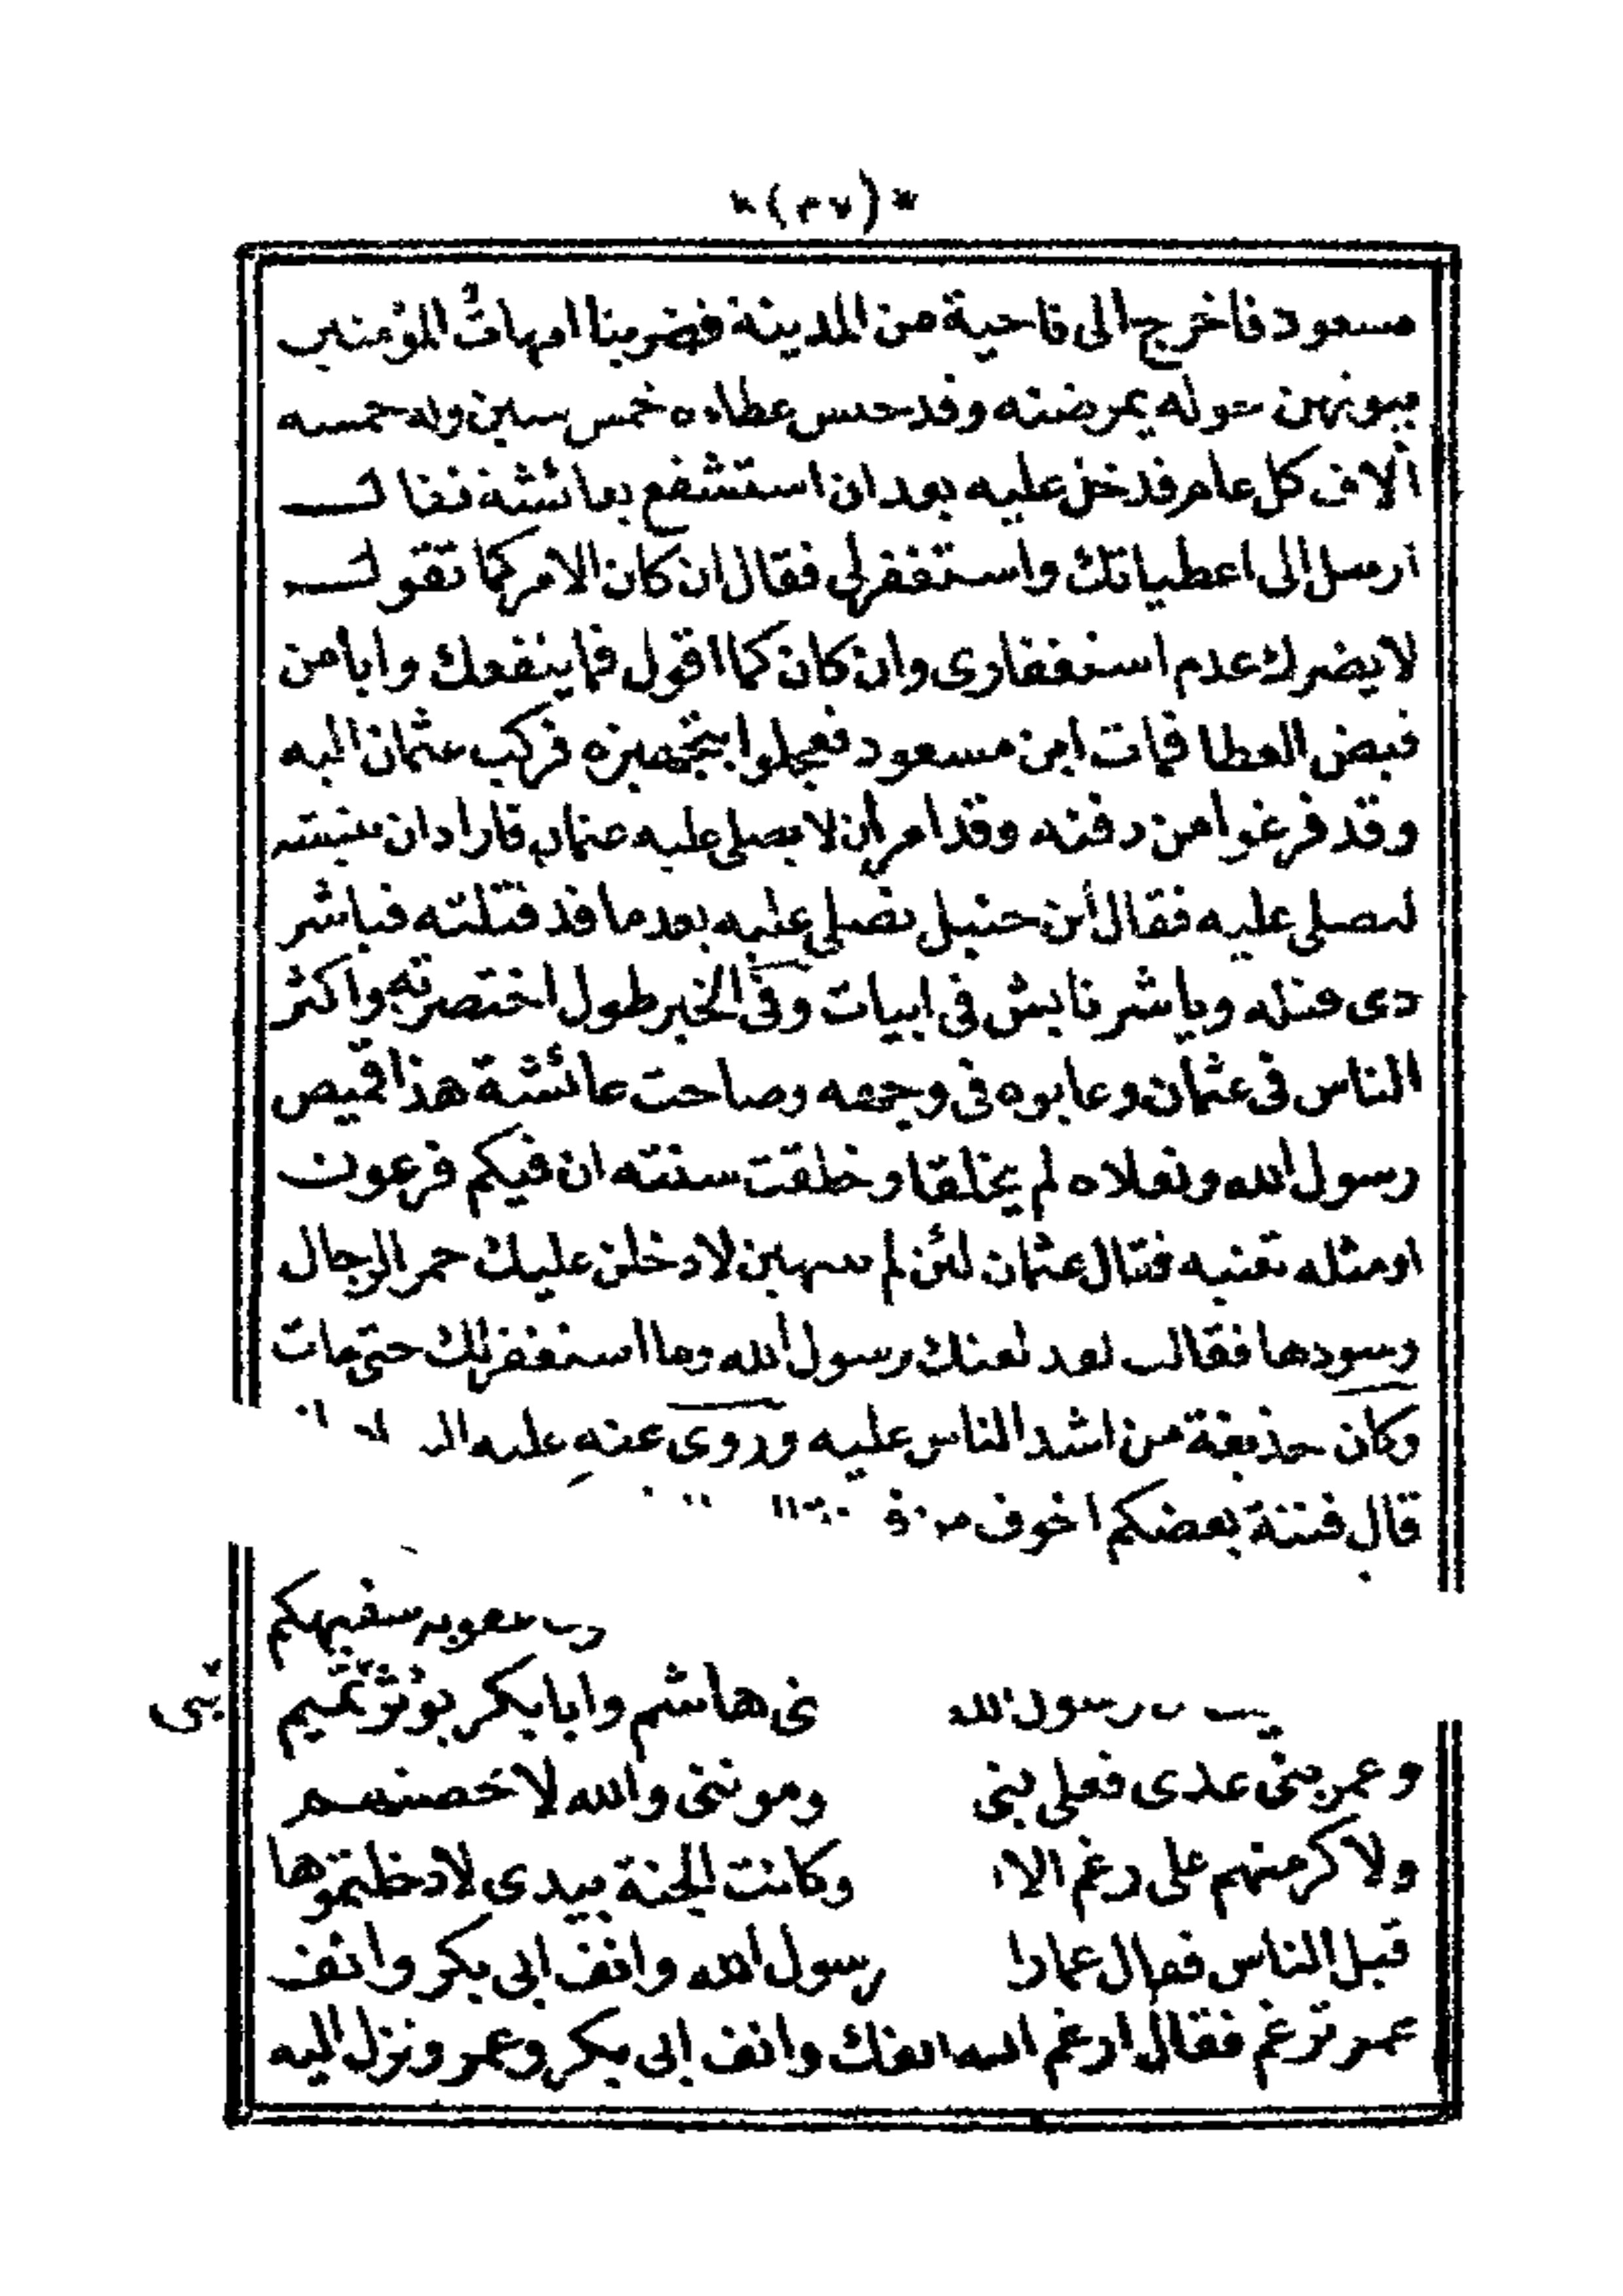 *(٣٧)*
مسعود فاخرج الى ناحية من المدينة فضربنا امهات المؤمنين
بيوتهن حوله يمرضنه وقد حبس عطاءه خمس سنين وله خمسه
آلاف كل عام فدخل عليه بعد ان استشفع بعائشة فقال
ارسل الى اعطياتك واستغفرلى فقال ان كان الامر كما تقول
لا يضرك عدم استغفارى وان كان كما اقول فما ينفعك وابا من
قبض العطا فمات ابن مسعود فعجلوا بتجهيزه فركب عثمان اليه
وقد فرغوا من دفنه وقد امر أن لا يصلى عليه عثمان فاراد ان ينبشه
ليصلى عليه فقال أبن حنبل تصلى عليه بعد ما قد قتلته فباشر
دى قتله وياشر نابش فى ابيات وفى الخبر طول اختصرته واكثر
الناس فى عثمان وعابوه فى وجهه وصاحت عائشة هذا قميص
رسول الله ونعلاه لم يخلقا وخلقت سنته ان فيكم فرعون
او مثله تعنيه فقال عثمان لئن لم تنتهين لادخلن عليك حمر الرجال
وسودها فقالت لعد لعنك رسول الله وما استغفر لك حتى مات
وكان حذيفة من اشد الناس عليه وروى عنه عليه
قال فتنة بعضكم اخوف
معويه سفيهكم
رسول الله نى هاشم وابا بكر يؤثر تميم
بنى
وعمر بنى عدى فعلى بنى ومونى والله لاخصنهم
ولاكرمنهم على رغم وكانت الجنة بيدى لادخلتموها
قبل الناس فقال عمارا رسول الله وانف ابى بكر وانف
عمر ترغم فقال ارغم الله انفك وانف ابى بكر وعمر ونزل اليه